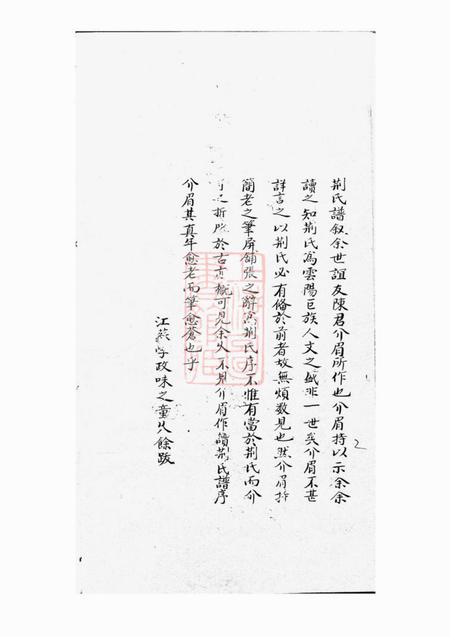 荆氏譜叙余世誼友陳君介眉所作也介眉持以示余余
讀之知荆氏為雲陽巨族人文之盛非一世矣介眉不甚
詳言之以荆氏必有偹於前者故無煩数見也然介眉抒
蘭老之筆屏鋪張之辭為荆氏序不惟有當於荆氏而介
於古亦概可見余久不見介眉作讀荆氏譜序
介眉其真年愈老而筆愈蒼也乎
江蘇学政味之童以餘跋
2